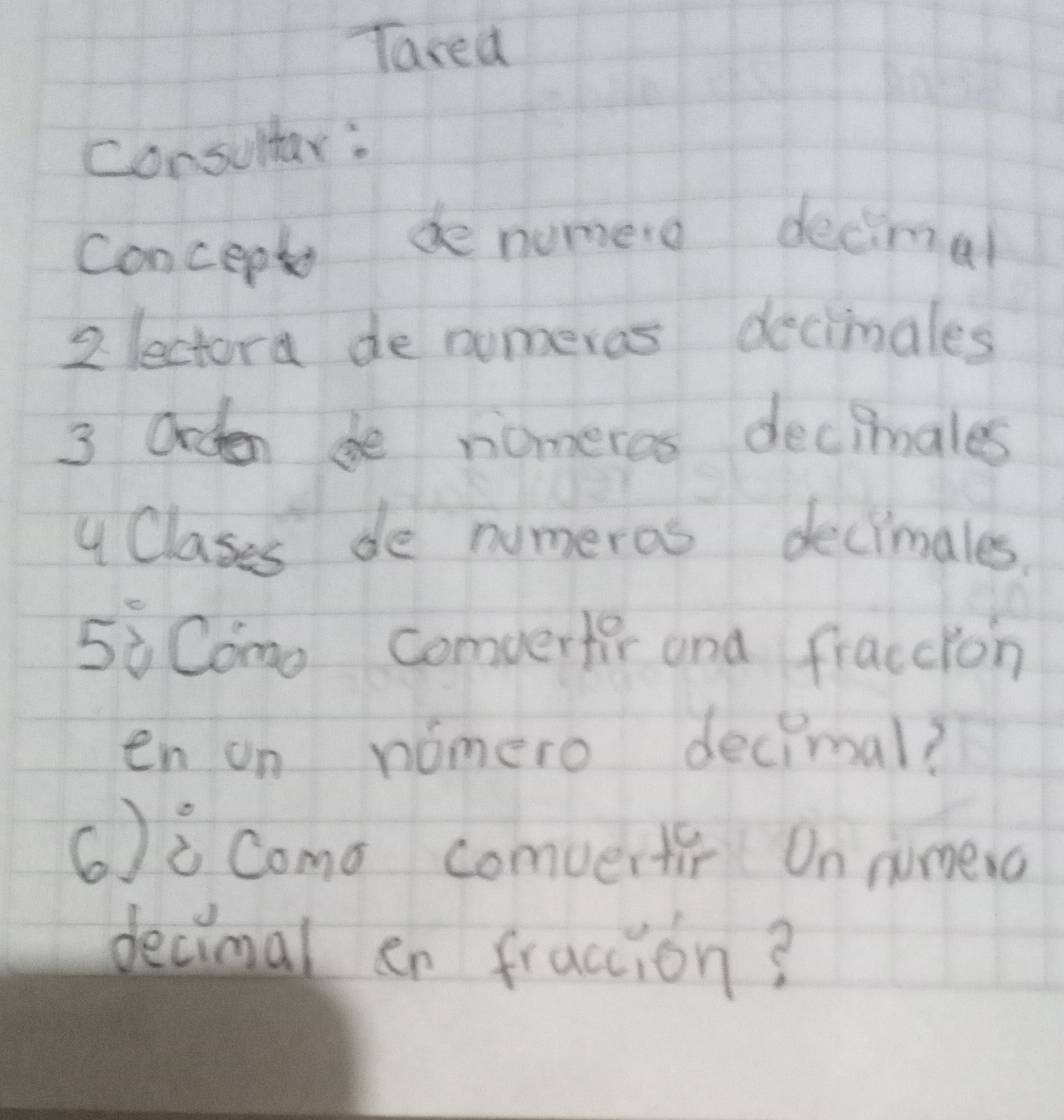 Tarea
Consultar:
Concepto de numero decimal
2 lectura de numeros decimales
3 Orden de números decimales
4 Clases de numeros decimales.
5¿Cómo comvertir una fracción
en un número decimal?
6)¿Como comvertir Un numero
decimal en fracción?